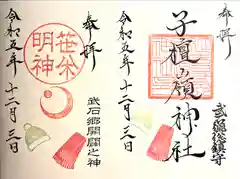 奉拝
子檀嶺神社
武石総鎮守
令和五年十二月三日
奉拝
笹焼明神
武石郷開闢之神
令和五年十二月三日